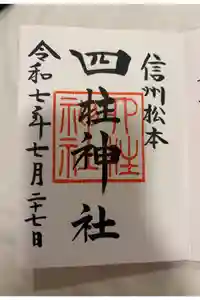 信州松本
四柱神社
令和七年七月二十七日